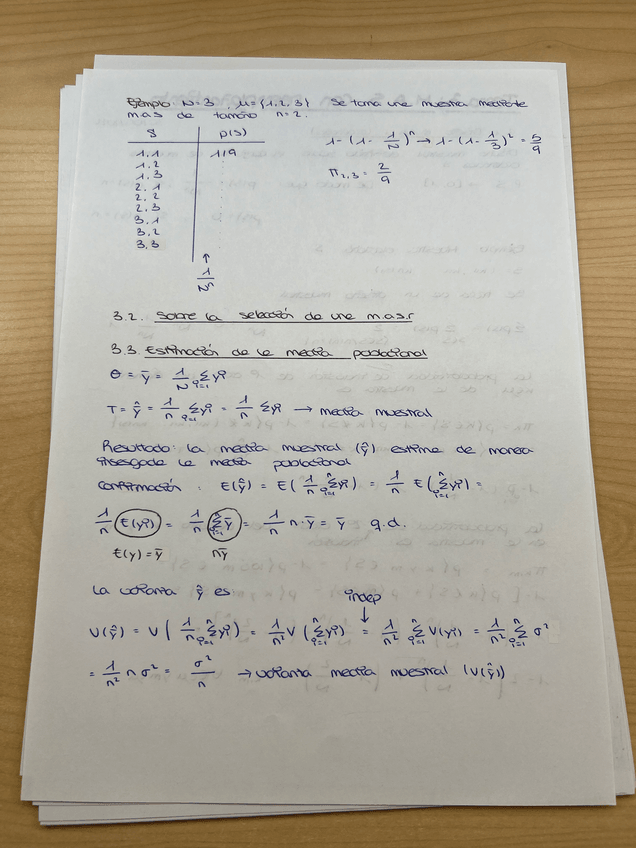 Ejemplo N=3, U={1,2,3} Se toma una muestra mediante
m.a.s de tamaño n=2.
S p(s)
1,1 1/9
1,2
1,3
2,1
2,2
2,3
3,1
3,2
3,3
↑
1/Nⁿ
1-(1-1/N)ⁿ → 1-(1-1/3)² = 5/9
π₂,₃ = 2/9
3.2. Sobre la selección de una m.a.s.r
3.3. Estimación de la media poblacional
θ = ȳ = 1/N Σᵢ₌₁ yi
T = ŷ̄ = 1/n Σᵢ₌₁ⁿ yi = 1/n Σ yi → media muestral
Resultado: la media muestral (ŷ̄) estima de manera
insesgada la media poblacional
Confirmación: E(ŷ̄) = E(1/n Σᵢ₌₁ⁿ yi) = 1/n E(Σᵢ₌₁ⁿ yi) =
1/n E(yi) = 1/n Σᵢ₌₁ ȳ = 1/n n·ȳ = ȳ q.d.
E(y) = ȳ nȳ
La varianza ŷ̄ es
indep
↓
V(ŷ̄) = V(1/n Σᵢ₌₁ⁿ yi) = 1/n² V(Σᵢ₌₁ⁿ yi) = 1/n² Σᵢ₌₁ⁿ V(yi) = 1/n² Σᵢ₌₁ⁿ σ²
= 1/n² n σ² = σ²/n → varianza media muestral (V(ŷ̄))